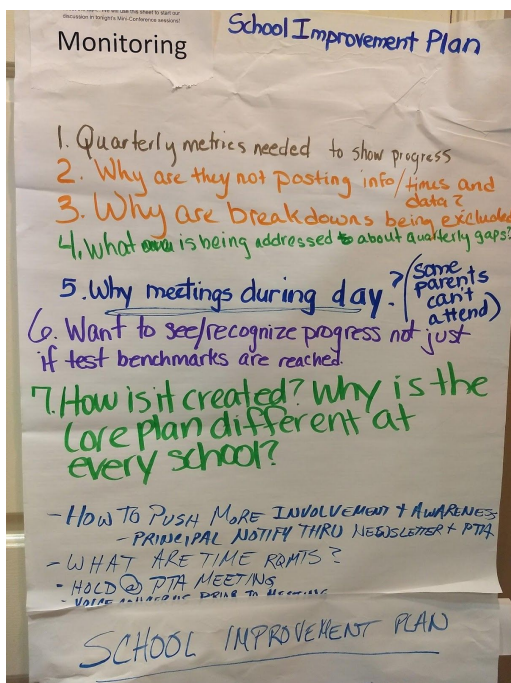 We will use this sheet to start our
discussion in tonight's Mini-Conference sessions!
Monitoring
School Improvement Plan
1. Quarterly metrics needed to show progress
2. Why are they not posting info/times and
data?
3. Why are breakdowns being excluded
4. What is being addressed about quarterly gaps?
5. Why meetings during day? (Some
parents
can't
attend)
6. Want to see/recognize progress not just
if test benchmarks are reached.
7. How is it created? Why is the
Core plan different at
every school?
- HOW TO PUSH MORE INVOLVEMENT + AWARENESS
- PRINCIPAL NOTIFY THRU NEWSLETTER + PTA
- WHAT ARE TIME RQMTS?
- HOLD @ PTA MEETING
- PRIOR TO MEETING
SCHOOL IMPROVEMENT PLAN